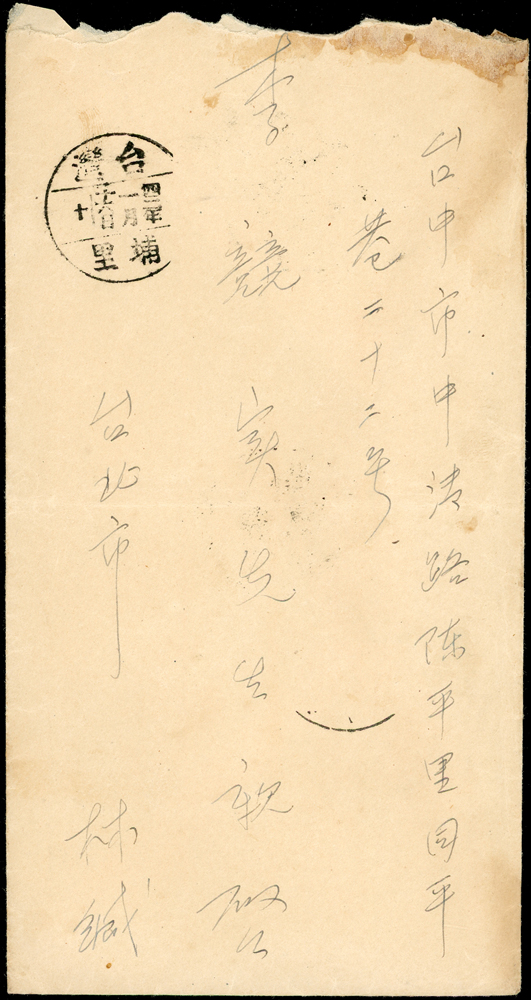 台中市中清路陳平里同平
巷二十二号
李競寅先生親啓
台北市 林緘
台灣
四一年
一月
十
埔里